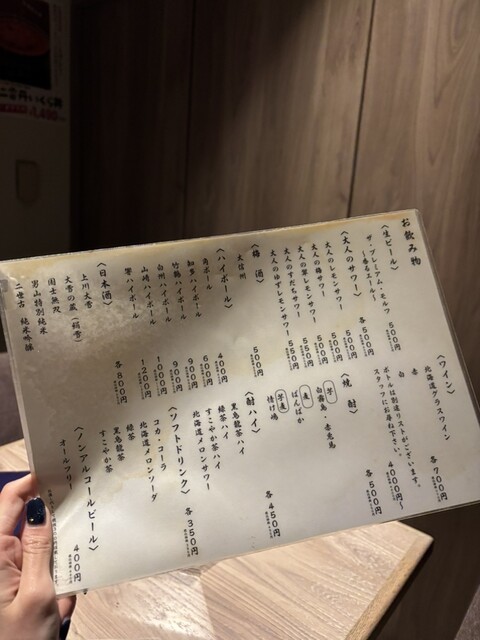 お飲み物
〈生ビール〉
ザ・プレミアム・モルツ 500円
〜香るエール〜 各500円
〈大人のサワー〉
大人のレモンサワー 500円
大人の梅サワー 500円
大人の翠レモンサワー 550円
大人のすだちサワー 550円
大人のゆずレモンサワー 550円
〈梅酒〉
大信州 500円
〈ハイボール〉
角ハイボール 400円
知多ハイボール 600円
竹鶴ハイボール 900円
白州ハイボール 900円
山崎ハイボール 1000円
響ハイボール 1200円
〈日本酒〉
上川大雪
大雪の蔵（絹雪）
国士無双
男山特別純米
二世古 純米吟醸
各800円
〈ワイン〉
北海道グラスワイン
赤
白
各700円
ボトルは別途リストがございます。 4000円〜
スタッフにお尋ね下さい。
〈焼酎〉
芋
白霧島・赤兎馬
麦
ぱんぱか
芋麦
情け嶋
各500円
〈酎ハイ〉
黒烏龍茶ハイ
緑茶ハイ
すこやか茶ハイ
北海道メロンサワー
各450円
〈ソフトドリンク〉
コカ・コーラ
北海道メロンソーダ
緑茶
黒烏龍茶
すこやか茶
各350円
〈ノンアルコールビール〉
オールフリー 400円